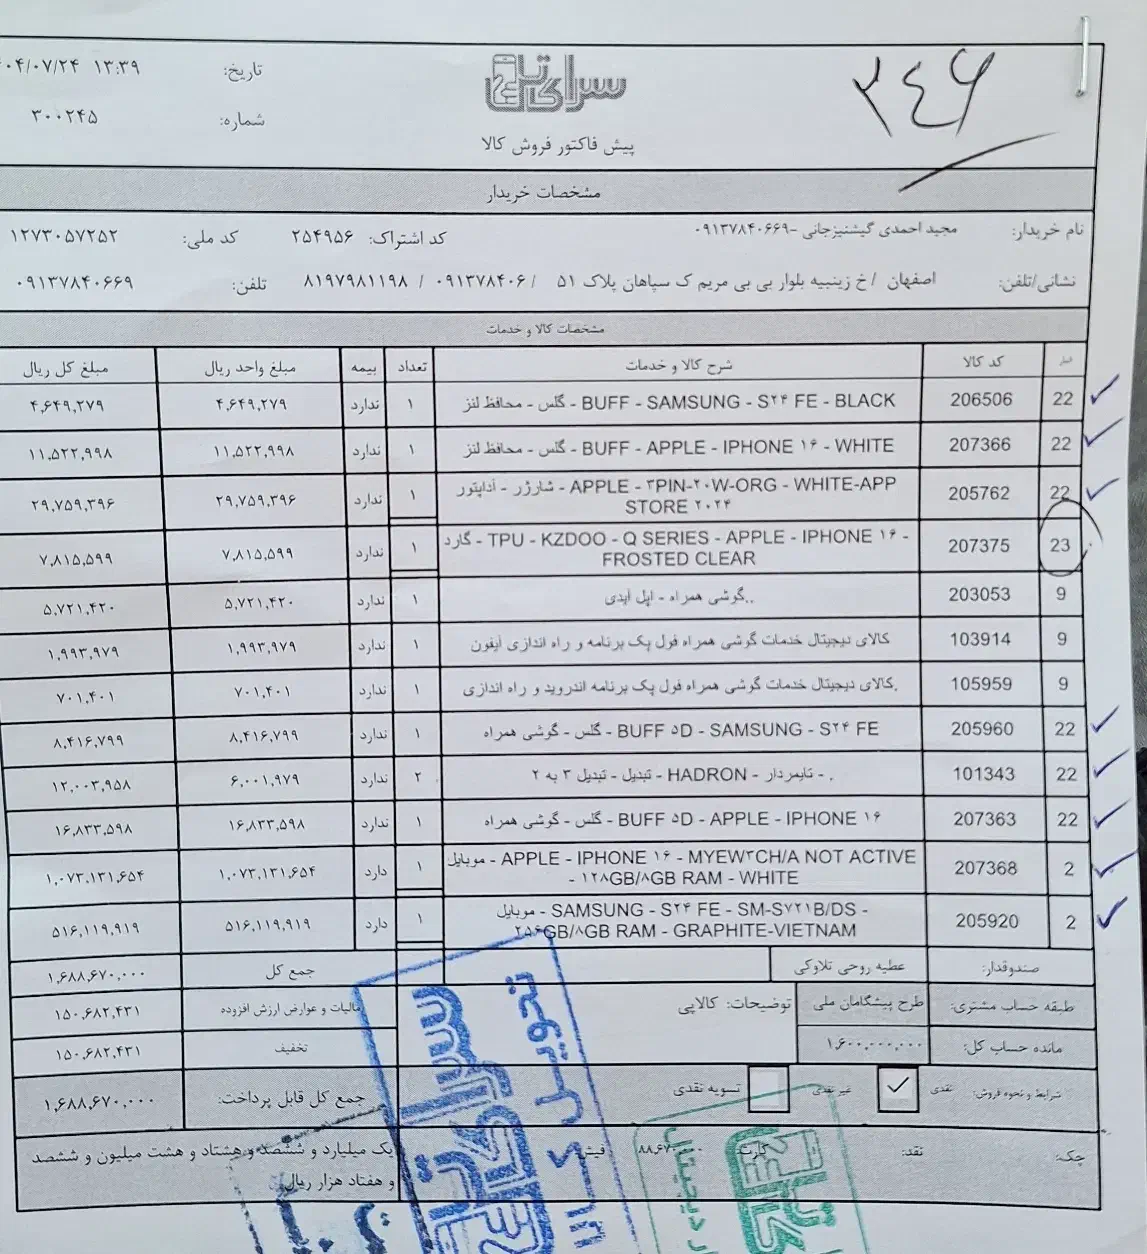 ۳۴۶
سرای تاپ
پیش فاکتور فروش کالا
تاریخ: ۰۴/۰۷/۲۴ ۱۳:۳۹
شماره: ۳۰۰۲۴۵
مشخصات خریدار
نام خریدار: مجید احمدی گیشنیزجانی -۰۹۱۳۷۸۴۰۶۶۹ کد اشتراک: ۲۵۴۹۵۶ کد ملی: ۱۲۷۳۰۵۷۲۵۲
نشانی/تلفن: اصفهان / خ زینبیه بلوار بی بی مریم ک سپاهان پلاک ۵۱ / ۰۹۱۳۷۸۴۰۶ / ۸۱۹۷۹۸۱۱۹۸ تلفن: ۰۹۱۳۷۸۴۰۶۶۹
مشخصات کالا و خدمات
کد کالا شرح کالا و خدمات تعداد بیمه مبلغ واحد ریال مبلغ کل ریال
22 206506 گلس - محافظ لنز - BUFF - SAMSUNG - S۲۴ FE - BLACK ۱ ندارد ۴,۶۴۹,۲۷۹ ۴,۶۴۹,۲۷۹
22 207366 گلس - محافظ لنز - BUFF - APPLE - IPHONE ۱۶ - WHITE ۱ ندارد ۱۱,۵۲۲,۹۹۸ ۱۱,۵۲۲,۹۹۸
22 205762 شارژر - آداپتور - APPLE - ۳PIN-۲۰W-ORG - WHITE-APP ۱ ندارد ۲۹,۷۵۹,۳۹۶ ۲۹,۷۵۹,۳۹۶
STORE ۲۰۲۴
23 207375 گارد - TPU - KZDOO - Q SERIES - APPLE - IPHONE ۱۶ - ۱ ندارد ۷,۸۱۵,۵۹۹ ۷,۸۱۵,۵۹۹
FROSTED CLEAR
9 203053 گوشی همراه - اپل آیدی.. ۱ ندارد ۵,۷۲۱,۴۲۰ ۵,۷۲۱,۴۲۰
9 103914 کالای دیجیتال خدمات گوشی همراه فول پک برنامه و راه اندازی آیفون ۱ ندارد ۱,۹۹۳,۹۷۹ ۱,۹۹۳,۹۷۹
9 105959 کالای دیجیتال خدمات گوشی همراه فول پک برنامه اندروید و راه اندازی. ۱ ندارد ۷۰۱,۴۰۱ ۷۰۱,۴۰۱
22 205960 گلس - گوشی همراه - BUFF ۵D - SAMSUNG - S۲۴ FE ۱ ندارد ۸,۴۱۶,۷۹۹ ۸,۴۱۶,۷۹۹
22 101343 تبدیل - تبدیل ۳ به ۲ - HADRON - تایمردار - . ۲ ندارد ۶,۰۰۱,۹۷۹ ۱۲,۰۰۳,۹۵۸
22 207363 گلس - گوشی همراه - BUFF ۵D - APPLE - IPHONE ۱۶ ۱ ندارد ۱۶,۸۳۳,۵۹۸ ۱۶,۸۳۳,۵۹۸
2 207368 موبایل - APPLE - IPHONE ۱۶ - MYEW۳CH/A NOT ACTIVE ۱ دارد ۱,۰۷۳,۱۳۱,۶۵۴ ۱,۰۷۳,۱۳۱,۶۵۴
- ۱۲۸GB/۸GB RAM - WHITE
2 205920 موبایل - SAMSUNG - S۲۴ FE - SM-S۷۲۱B/DS - ۱ دارد ۵۱۶,۱۱۹,۹۱۹ ۵۱۶,۱۱۹,۹۱۹
۲۵۶GB/۸GB RAM - GRAPHITE-VIETNAM
صندوقدار: عطیه روحی تلاوکی جمع کل ۱,۶۸۸,۶۷۰,۰۰۰
طبقه حساب مشتری: طرح پیشگامان ملی توضیحات: کالاپی مالیات و عوارض ارزش افزوده ۱۵۰,۶۸۲,۴۳۱
مانده حساب کل: ۱,۶۰۰,۰۰۰,۰۰۰ تخفیف ۱۵۰,۶۸۲,۴۳۱
شرایط و نحوه فروش: نقدی غیر نقدی تسویه نقدی جمع کل قابل پرداخت: ۱,۶۸۸,۶۷۰,۰۰۰
چک: نقد: کارت: فیش یک میلیارد و ششصد و هشتاد و هشت میلیون و ششصد
و هفتاد هزار ریال
تحویل